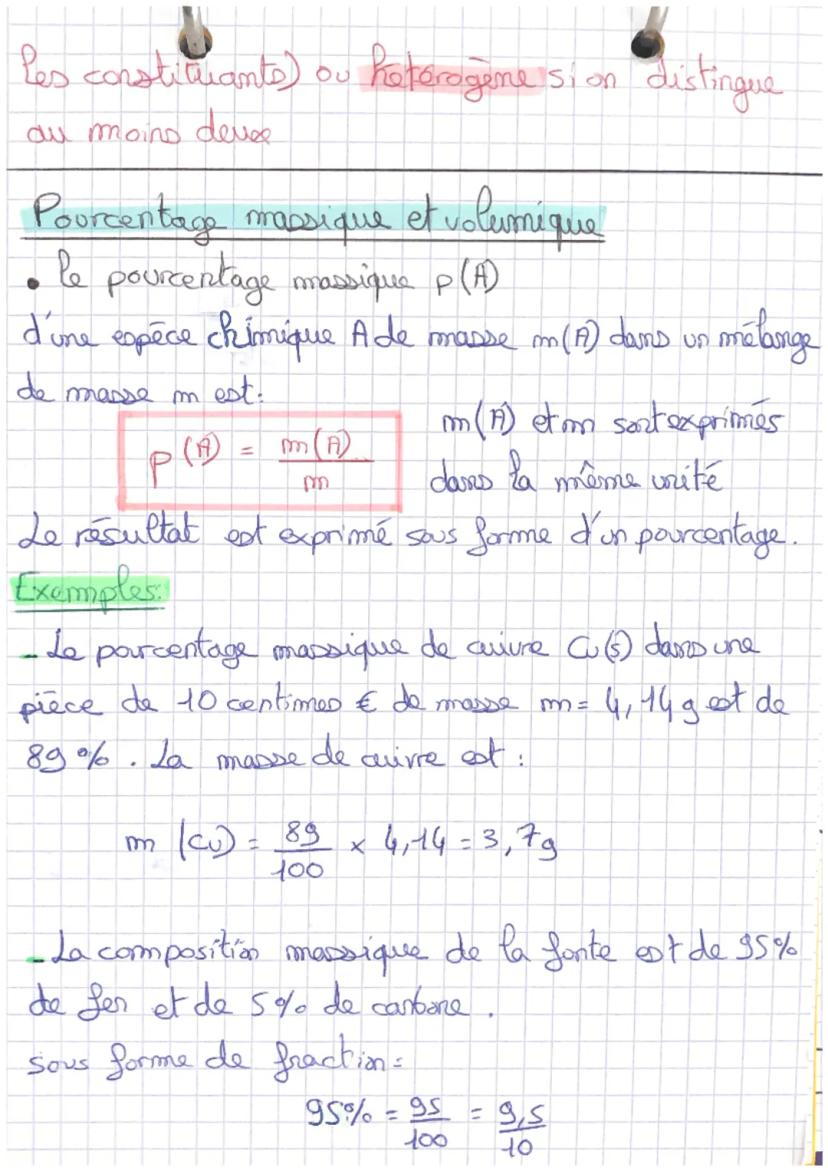 les constituants) ou hétérogène si on distingue
au moins deux
Pourcentage massique et volumique
• le pourcentage massique p(A)
d'une espèce chimique A de masse m(A) dans un mélange
de masse m est:
p(A) = m(A)/m
m(A) et m sont exprimés
dans la même unité
Le résultat est exprimé sous forme d'un pourcentage.
Exemples:
- Le pourcentage massique de cuivre Cu(s) dans une
pièce de 10 centimes € de masse m = 4,14 g est de
89 %. La masse de cuivre est :
m (Cu) = 89/100 × 4,14 = 3,7g
- La composition massique de la fonte est de 95%
de fer et de 5% de carbone.
sous forme de fraction =
95% = 95/100 = 9,5/10